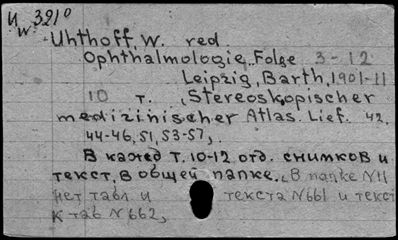 U 3210
w
Uhthoff, W. red.
Ophthalmologie, Folge 3-12
Leipzig, Barth, 1901-11
10 т. , Stereoskopischer
medizinischer Atlas. Lief. 42,
44-46, 51, 53-57,
В кажд т. 10-12 отд. снимков и
текст, в общей папке., В папке N11
нет табл и текста N661 и текст
к таб N662,